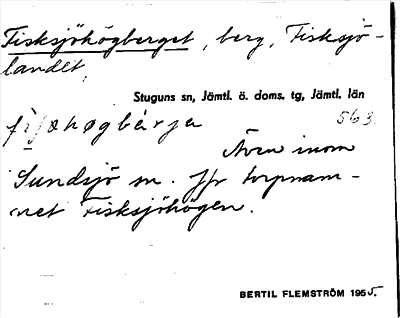 Fisksjöhögberget, berg, Fisksjö-
landet.
Stuguns sn, Jämtl. ö. doms. tg, Jämtl. län
563
Även inom
Sundsjö sn. Jfr torpnam-
net Fisksjöhögen.
BERTIL FLEMSTRÖM 1965.